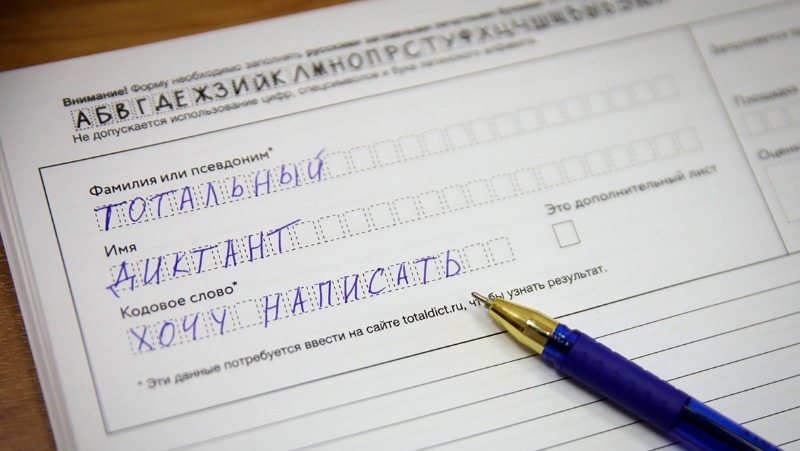 Внимание! Форму необходимо заполнить русскими заглавными печатными буквами
АБВГДЕЖЗИЙКЛМНОПРСТУФХЦЧШЩЪЫЬ
Не допускается использование цифр, спецсимволов и букв латинского алфавита.
Заполняется
Фамилия или псевдоним*
ТОТАЛЬНЫЙ
Площадка
Имя
ДИКТАНТ
Это дополнительный лист
Оценка
Кодовое слово*
ХОЧУ НАПИСАТЬ
* Эти данные потребуется ввести на сайте totaldict.ru, чтобы узнать результат.